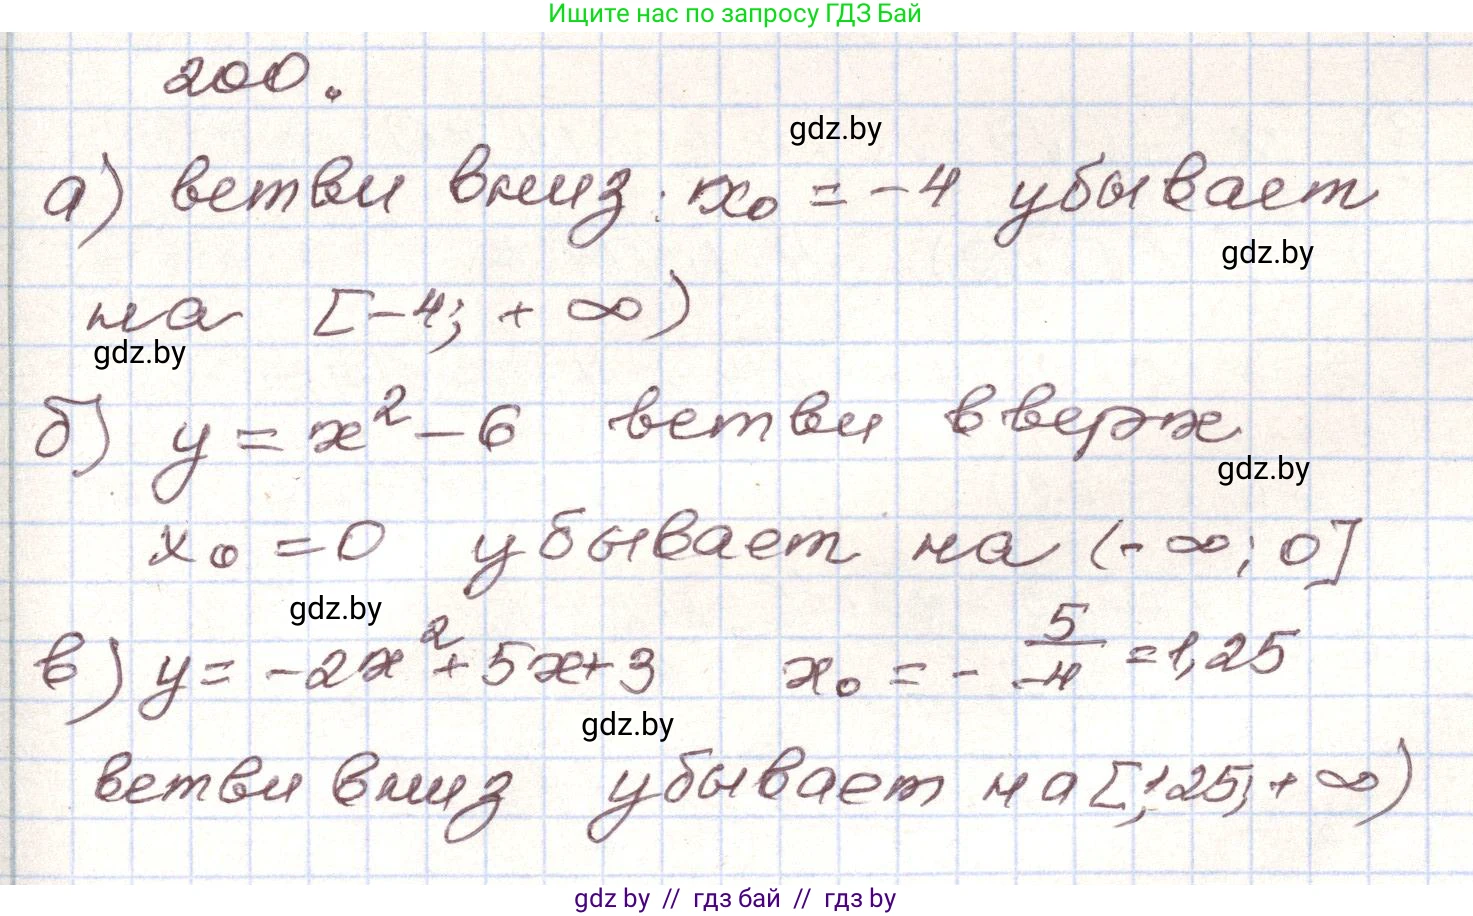 Ищите нас по запросу ГДЗ Бай
200.
gdz.by
а) ветви вниз. x₀ = -4 убывает
gdz.by
на [-4; + ∞)
gdz.by
б) y = x² - 6 ветви вверх
gdz.by
x₀ = 0 убывает на (-∞; 0]
gdz.by
в) y = -2x² + 5x + 3 x₀ = - 5/-4 = 1,25
gdz.by
ветви вниз убывает на [1,25; + ∞)
gdz.by // гдз бай // гдз by